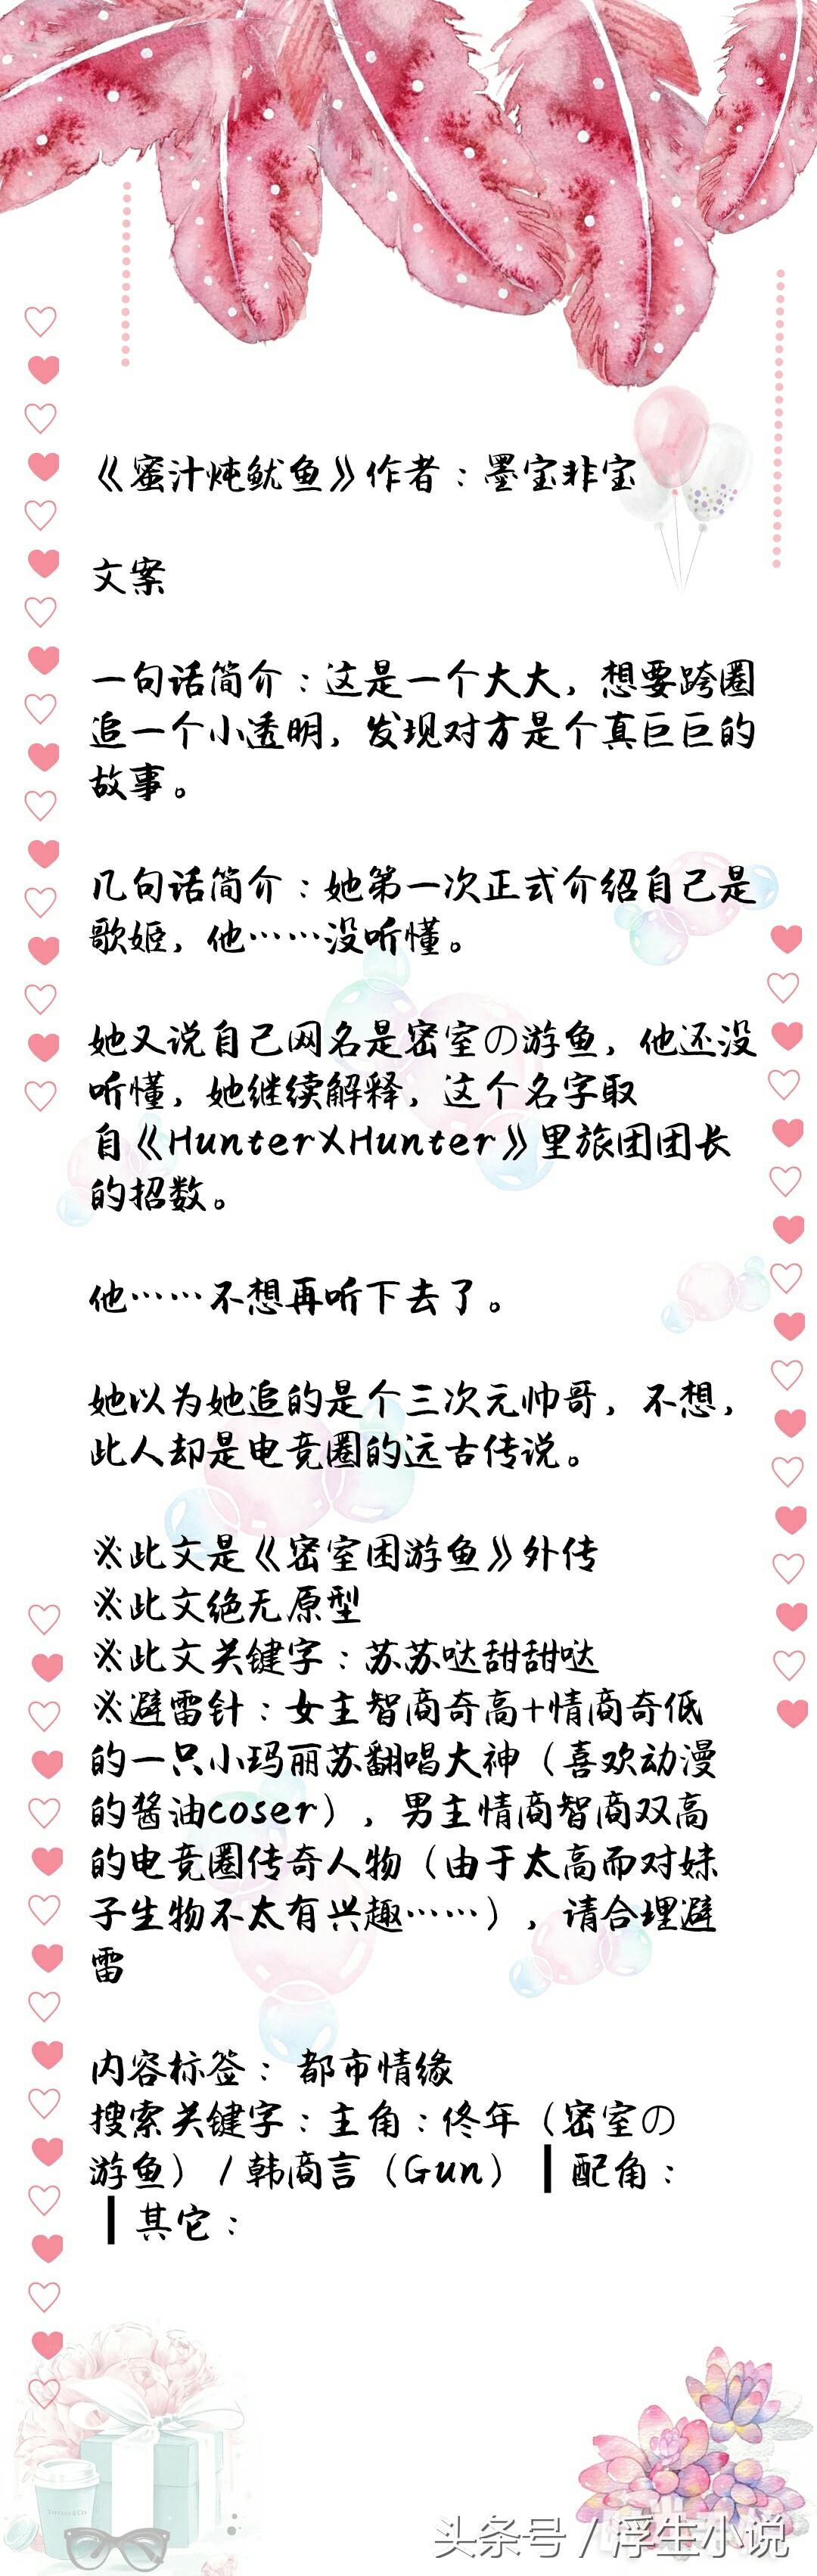 《蜜汁炖鱿鱼》作者：墨宝非宝
文案
一句话简介：这是一个大大，想要跨圈
追一个小透明，发现对方是个真巨巨的
故事。
几句话简介：她第一次正式介绍自己是
歌姬，他……没听懂。
她又说自己网名是密室の游鱼，他还没
听懂，她继续解释，这个名字取
自《HunterXHunter》里旅团团长
的招数。
他……不想再听下去了。
她以为她追的是个三次元帅哥，不想，
此人却是电竞圈的远古传说。
※此文是《密室困游鱼》外传
※此文绝无原型
※此文关键字：苏苏哒甜甜哒
※避雷针：女主智商奇高+情商奇低
的一只小玛丽苏翻唱大神（喜欢动漫
的酱油coser），男主情商智商双高
的电竞圈传奇人物（由于太高而对妹
子生物不太有兴趣……），请合理避
雷
内容标签： 都市情缘
搜索关键字：主角：佟年（密室の
游鱼）／韩商言（Gun）┃配角：
┃其它：
TIFFANY & CO.
头条号 / 浮生小说